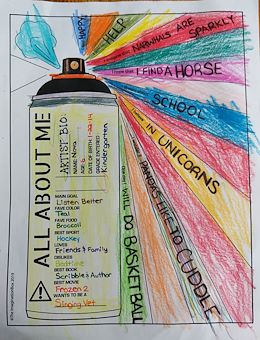 HAPPY
HELP
NARWHALS ARE SPARKLY
I FIND A HORSE
SCHOOL
IN UNICORNS
PANDAS LIKE TO CUDDLE
WILL DO BASKETBALL
ALL ABOUT ME
ARTIST BIO:
NAME: Nora
AGE: 6
DATE OF BIRTH: 1-22-14
Kindergarten
MAIN GOAL
Listen Better
FAVE COLOR
Teal
FAVE FOOD
Broccoli
BEST SPORT
Hockey
LOVES
Friends & Family
DISLIKES
Bedtime
BEST BOOK
Scribble & Author
BEST MOVIE
Frozen 2
WANTS TO BE A
Singing Vet